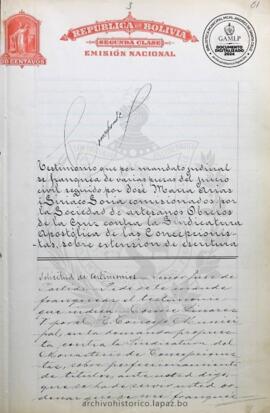 3
61
REPUBLICA DE BOLIVIA
SEGUNDA CLASE
EMISIÓN NACIONAL
CENTAVOS
GAMLP
DOCUMENTO
DIGITALIZADO
2024
Testimonio que por mandato judicial
se franquea de varias piezas del juicio
civil seguido por José María Arias
i Ciriaco Soria comisionados por
la Sociedad de artesanos Obreros
de la Cruz contra la Sindicatura
Apostólica de las Concepcionis-
tas, sobre extension de escritura
Solicitud de testimonio Señor Juez de
Partido Pide se le mande
franquear el testimonio
que indica
por el Concejo Munici-
pal en la demanda
contra la Sindicatura del
Monasterio de Concepcionis-
tas, sobre
de títulos, ante usted digo:
que se ha de servir usted or-
denar que se me franquee
archivohistorico.lapaz.bo